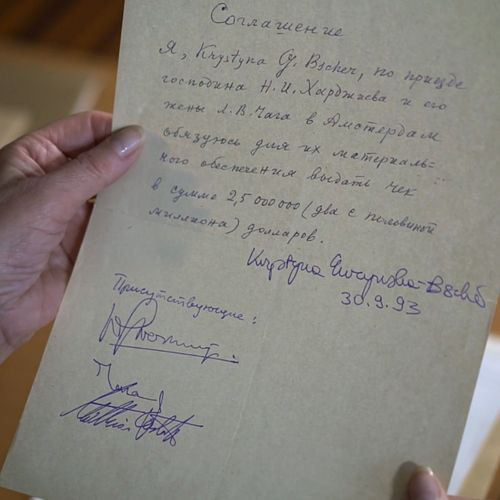 Соглашение
Я, Krystyna G. Bscher, по приезде
господина Н. И. Харджиева и его
жены Л. В. Чага в Амстердам
обязуюсь для их материаль-
ного обеспечения выдать чек
в сумме 2,5 000000 (два с половиной
миллиона) долларов.
Krystyna
30.9.93
Присутствующие:
Чага